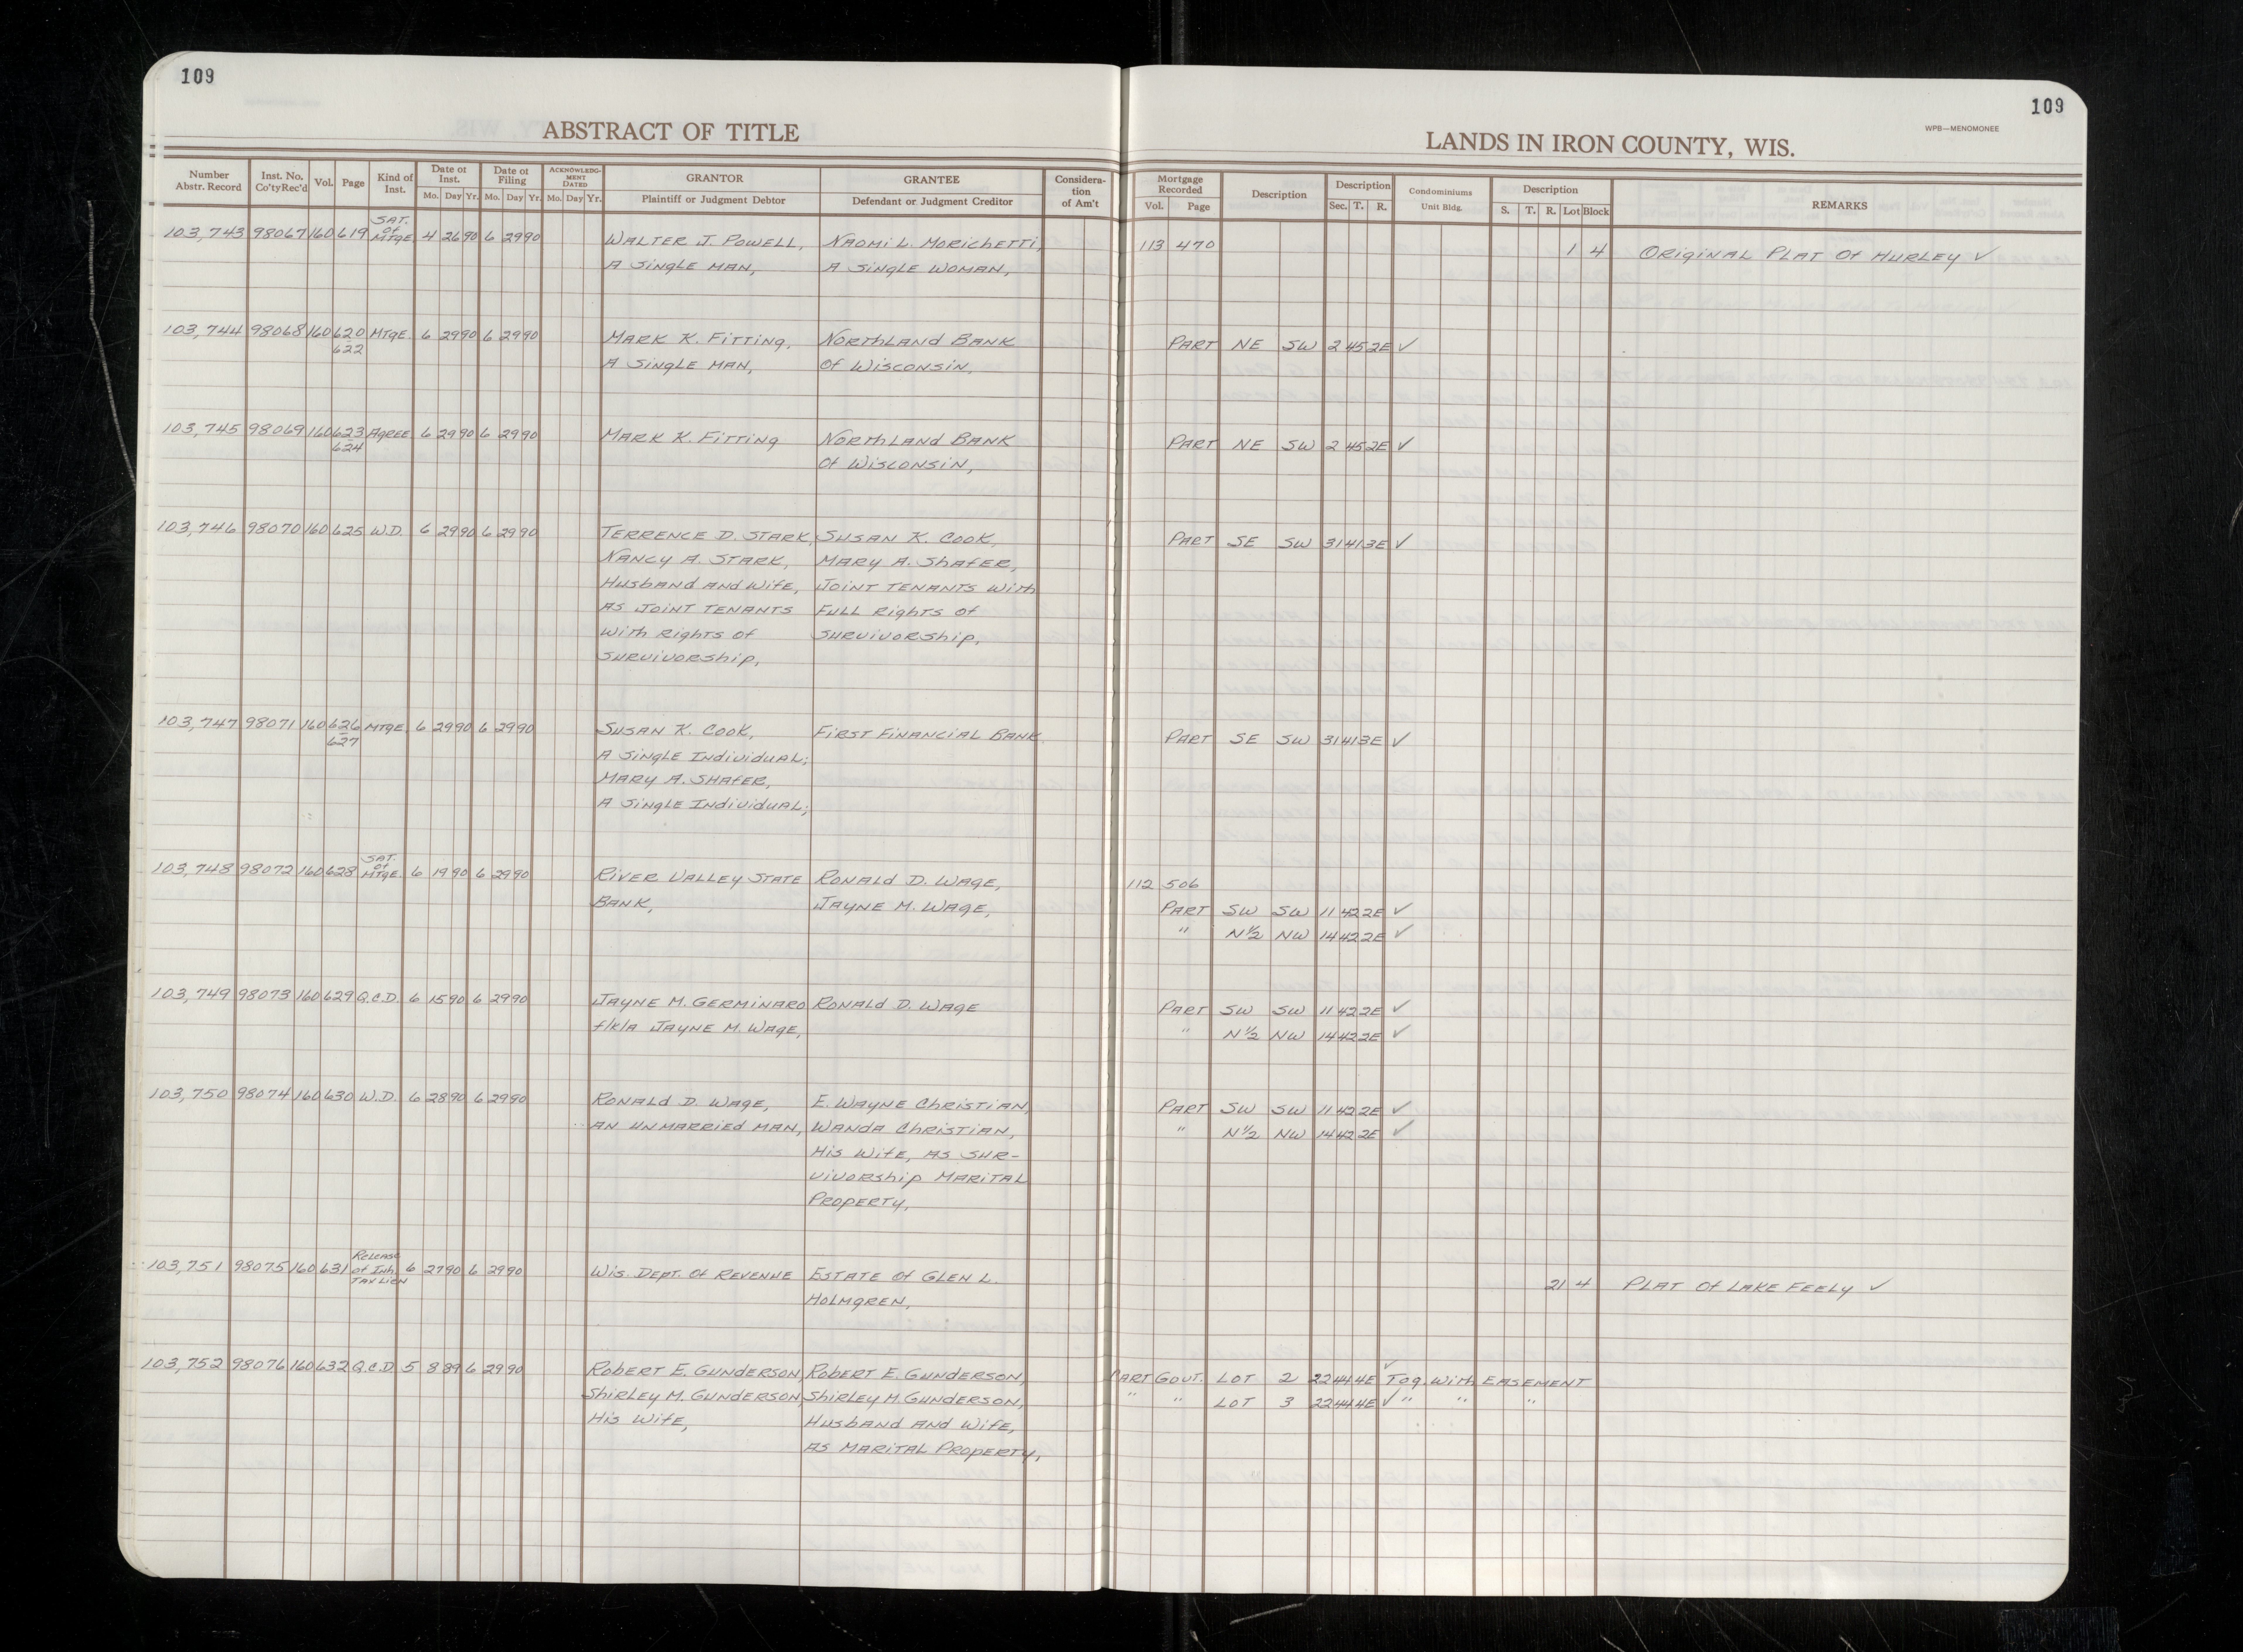 109
109
WPB—MENOMONEE
ABSTRACT OF TITLE
LANDS IN IRON COUNTY, WIS.
Number Abstr. Record | Inst. No. Co'tyRec'd | Vol. | Page | Kind of Inst. | Date of Inst. Mo. Day Yr. | Date of Filing Mo. Day Yr. | ACKNOWLEDG-MENT DATED Mo. Day Yr. | GRANTOR Plaintiff or Judgment Debtor | GRANTEE Defendant or Judgment Creditor | Considera-tion of Am't | Mortgage Recorded Vol. Page | Description | Description Sec. T. R. | Condominiums Unit Bldg. | Description S. T. R. Lot Block | REMARKS
103,743 98067 160 619 SAT. of MTGE 4 26 90 6 29 90 WALTER J. POWELL, NAOMI L. MORICHETTI, 113 470 1 4 ORIGINAL PLAT Of HURLEY ✓
A SINGLE MAN, A SINGLE WOMAN,
103,744 98068 160 620 MTGE. 6 29 90 6 29 90 MARK K. FITTING, NORTHLAND BANK PART NE SW 2 45 2E ✓
622 A SINGLE MAN, Of WISCONSIN,
103,745 98069 160 623 AGREE 6 29 90 6 29 90 MARK K. FITTING NORTHLAND BANK PART NE SW 2 45 2E ✓
624 Of WISCONSIN,
103,746 98070 160 625 W.D. 6 29 90 6 29 90 TERRENCE D. STARK, SUSAN K. COOK, PART SE SW 31 41 3E ✓
NANCY A. STARK, MARY A. SHAFER,
HUSBAND AND WIFE, JOINT TENANTS WITH
AS JOINT TENANTS FULL RIGHTS Of
WITH RIGHTS Of SURVIVORSHIP,
SURVIVORSHIP,
103,747 98071 160 626 MTGE 6 29 90 6 29 90 SUSAN K. COOK, FIRST FINANCIAL BANK PART SE SW 31 41 3E ✓
627 A SINGLE INDIVIDUAL;
MARY A. SHAFER,
A SINGLE INDIVIDUAL;
103,748 98072 160 628 SAT. of MTGE. 6 19 90 6 29 90 RIVER VALLEY STATE RONALD D. WAGE, 112 506
BANK, JAYNE M. WAGE, PART SW SW 11 42 2E ✓
" N½ NW 14 42 2E ✓
103,749 98073 160 629 Q.C.D. 6 15 90 6 29 90 JAYNE M. GERMINARO RONALD D. WAGE PART SW SW 11 42 2E ✓
f/k/a JAYNE M. WAGE, " N½ NW 14 42 2E ✓
103,750 98074 160 630 W.D. 6 28 90 6 29 90 RONALD D. WAGE, E. WAYNE CHRISTIAN, PART SW SW 11 42 2E ✓
AN UNMARRIED MAN, WANDA CHRISTIAN, " N½ NW 14 42 2E ✓
HIS WIFE, AS SUR-
VIVORSHIP MARITAL
PROPERTY,
103,751 98075 160 631 RELEASE of Inh. TAX LIEN 6 27 90 6 29 90 WIS. DEPT. Of REVENUE ESTATE Of GLEN L. 21 4 PLAT Of LAKE FEELY ✓
HOLMGREN,
103,752 98076 160 632 Q.C.D. 5 8 89 6 29 90 ROBERT E. GUNDERSON, ROBERT E. GUNDERSON, PART GOVT. LOT 2 22 44 4E ✓ TOG. WITH EASEMENT
SHIRLEY M. GUNDERSON, SHIRLEY M. GUNDERSON, " " LOT 3 22 44 4E ✓ " " "
HIS WIFE, HUSBAND AND WIFE,
AS MARITAL PROPERTY,